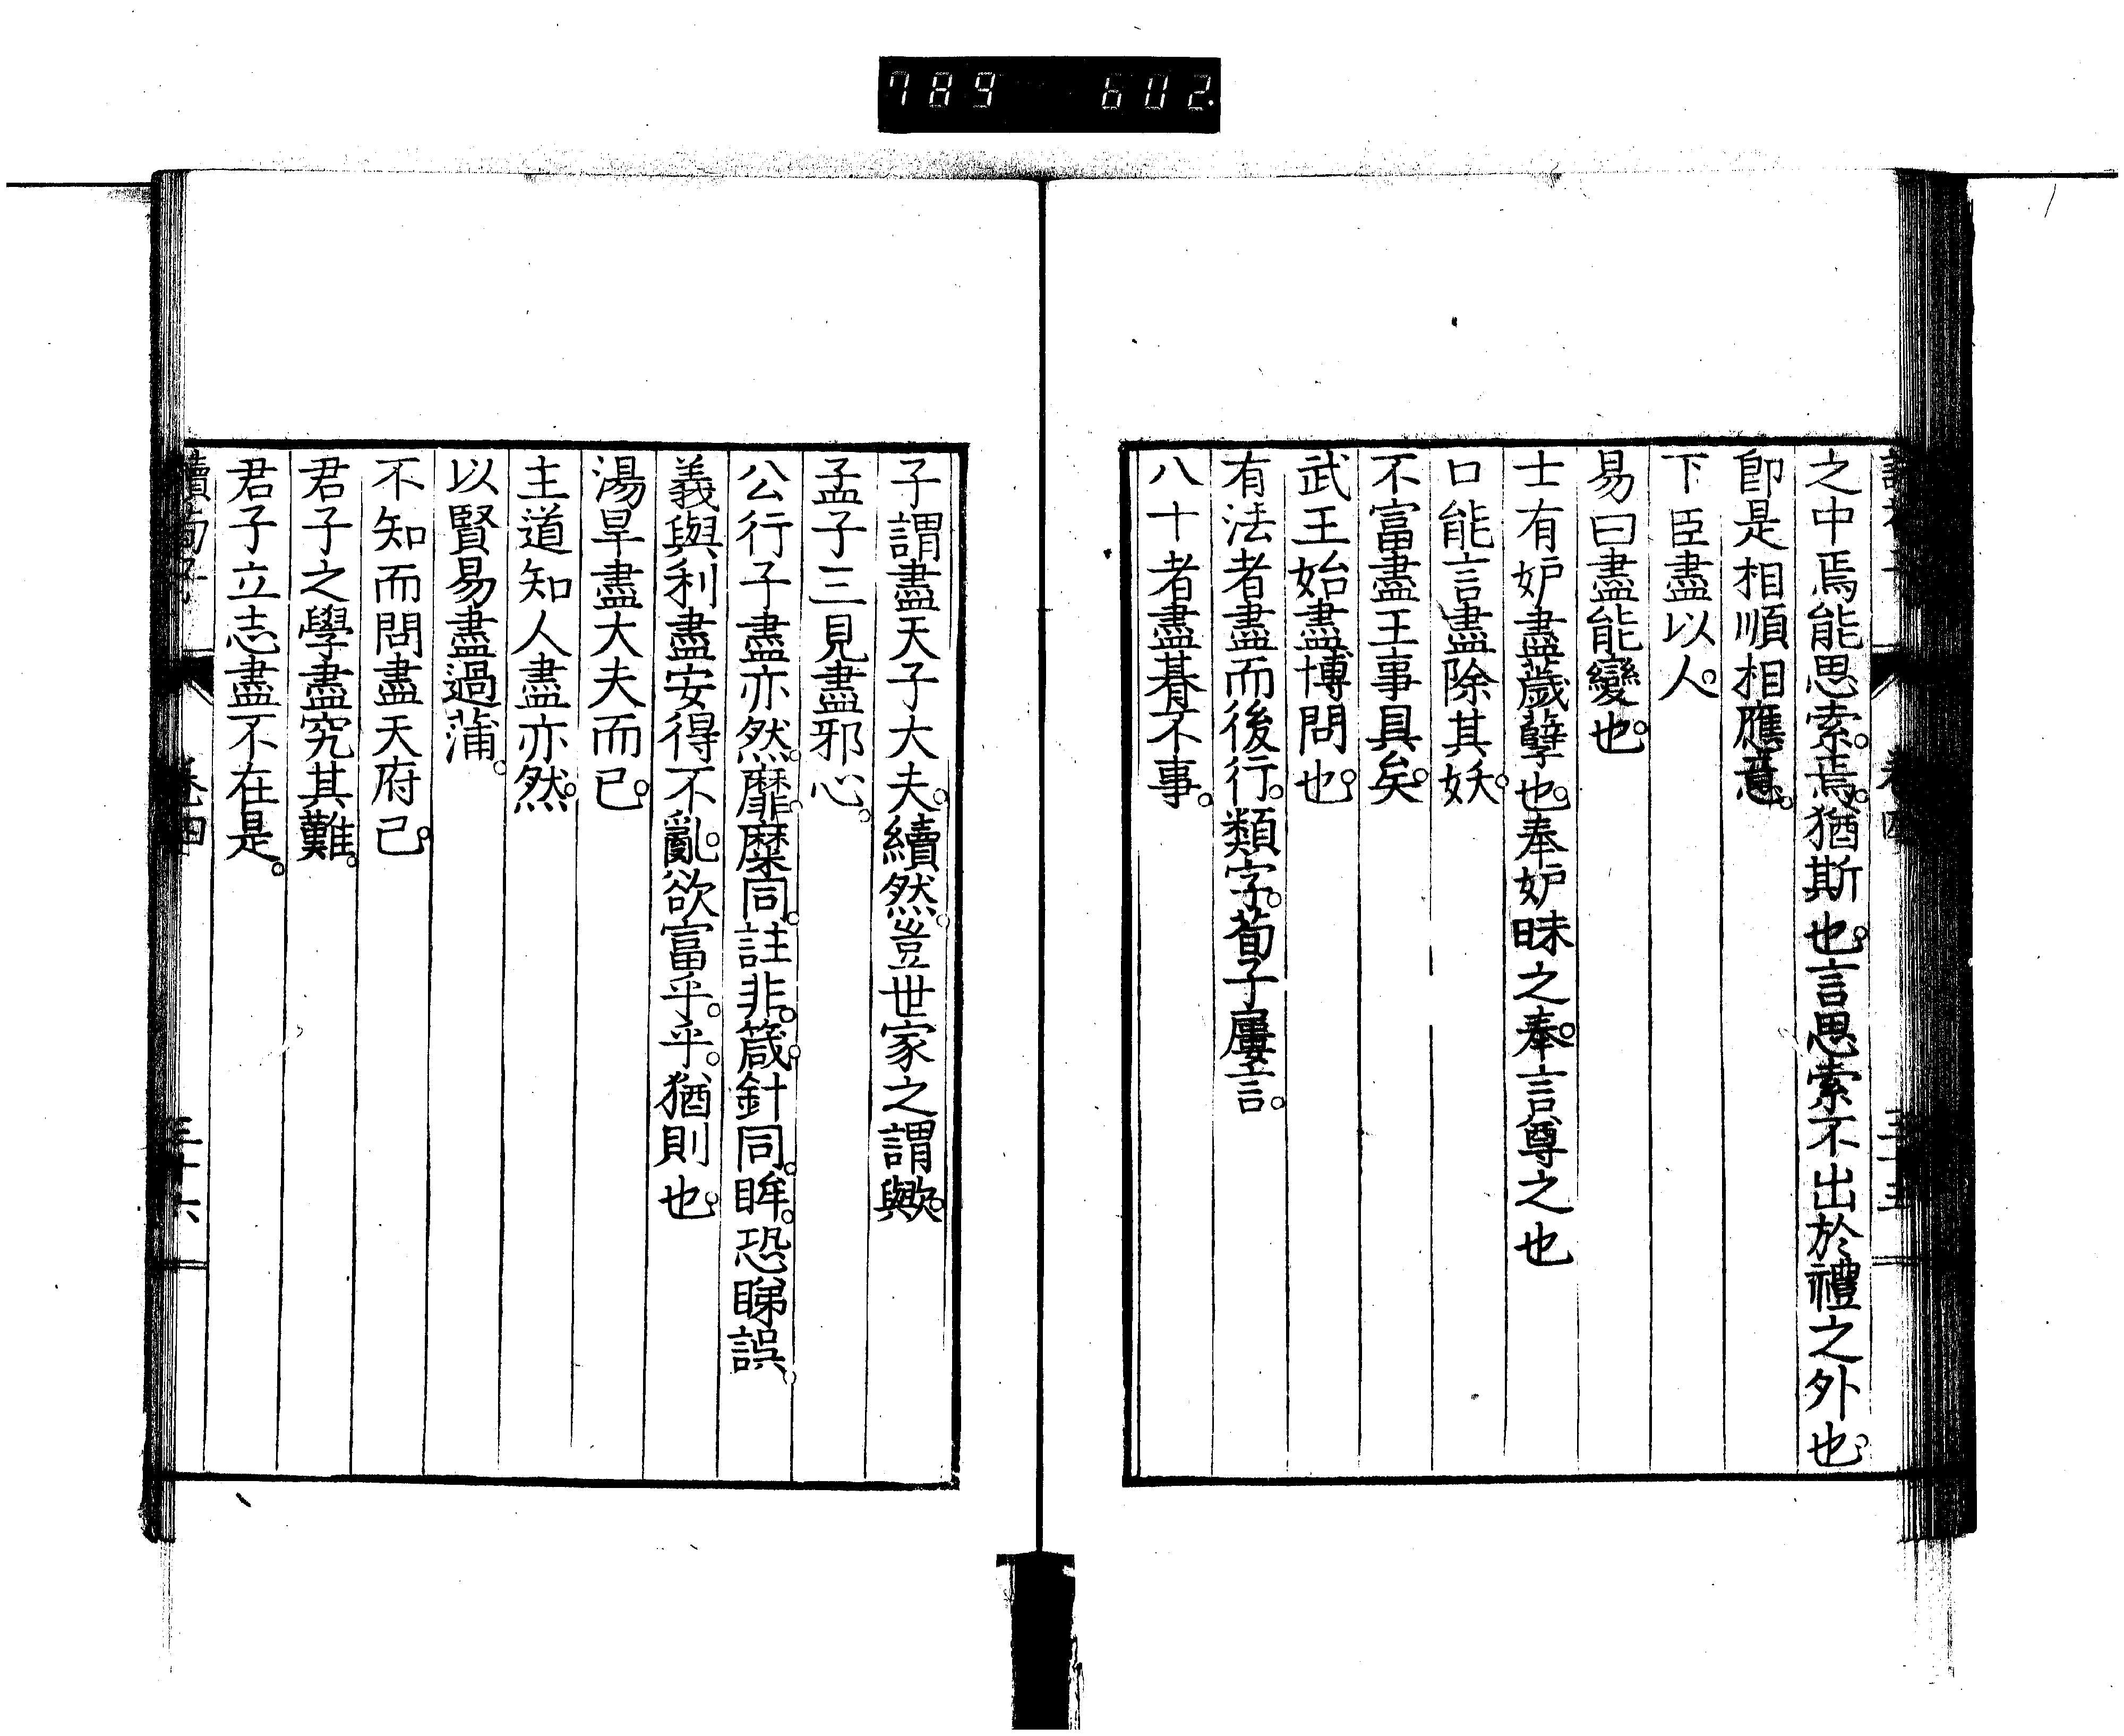 789 602
之中焉能思索。焉。猶斯也。言思索不出於禮之外也。
卽是相順相應意。
下臣盡以人。
易曰盡能變也。
士有妒盡薉孽也。奉妒昧之奉。言尊之也
口能言盡除其妖。
不富盡王事具矣。
武王始盡博問也。
有法者盡而後行。類字。荀子屢言。
八十者盡朞不事。
子謂盡天子大夫。續然。豈世家之謂歟。
孟子三見盡邪心。
公行子盡亦然。靡。糜同。註非。箴。針同。眸。恐睇誤。
義與利盡安得不亂。欲富乎。乎。猶則也。
湯旱盡大夫而已。
主道知人盡亦然。
以賢易盡過蒲。
不知而問盡天府己。
君子之學盡究其難。
君子立志盡不在是。
讀荀子 卷四 三十六